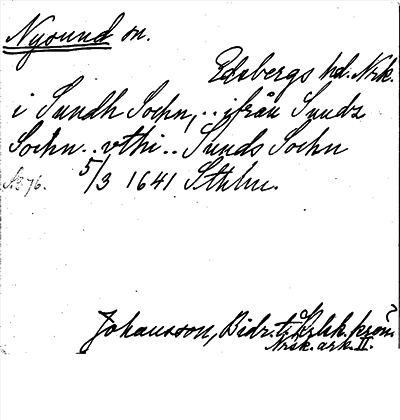 Nysund sn.
Edsbergs hd. Nrk.
i Sundh Sochn,.. ifrån Sundz
Sochn.. vthi.. Sunds Sochn
5/3 1641 Sthlm.
Johansson, Bidr. t. krön.
Nrk. ark. II.